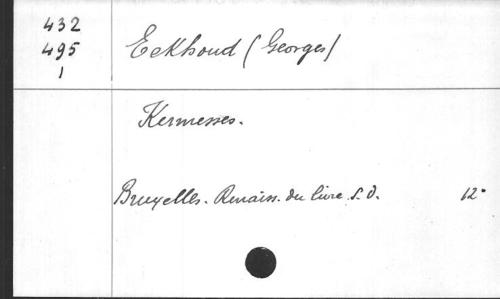 432
495
1
Eekhoud (Georges)
Kermesses.
Bruxelles. Renaiss. du livre s.d. 12°